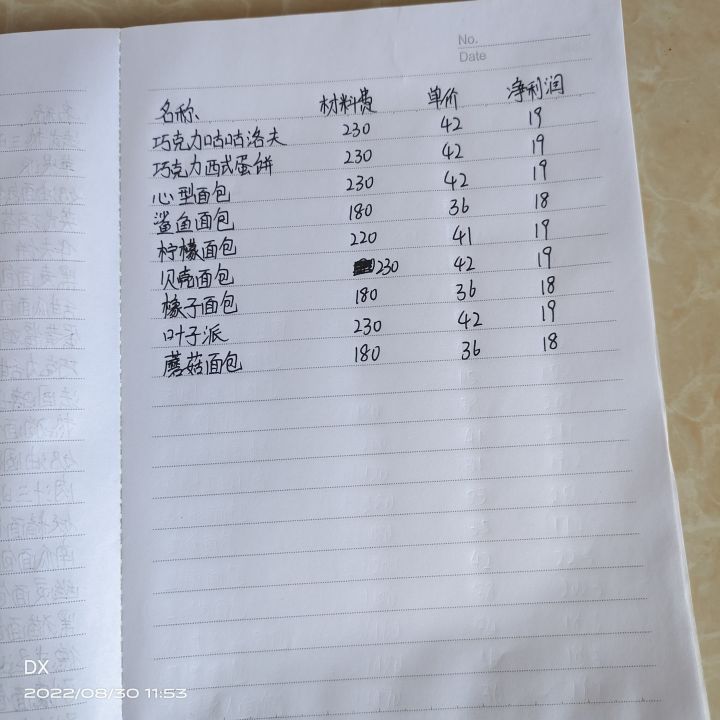 No.
Date
名称 材料费 单价 净利润
巧克力咕咕洛夫 230 42 19
巧克力西式蛋饼 230 42 19
心型面包 230 42 19
鲨鱼面包 180 36 18
柠檬面包 220 41 19
贝壳面包 230 42 19
橡子面包 180 36 18
叶子派 230 42 19
蘑菇面包 180 36 18
DX
2022/08/30 11:53